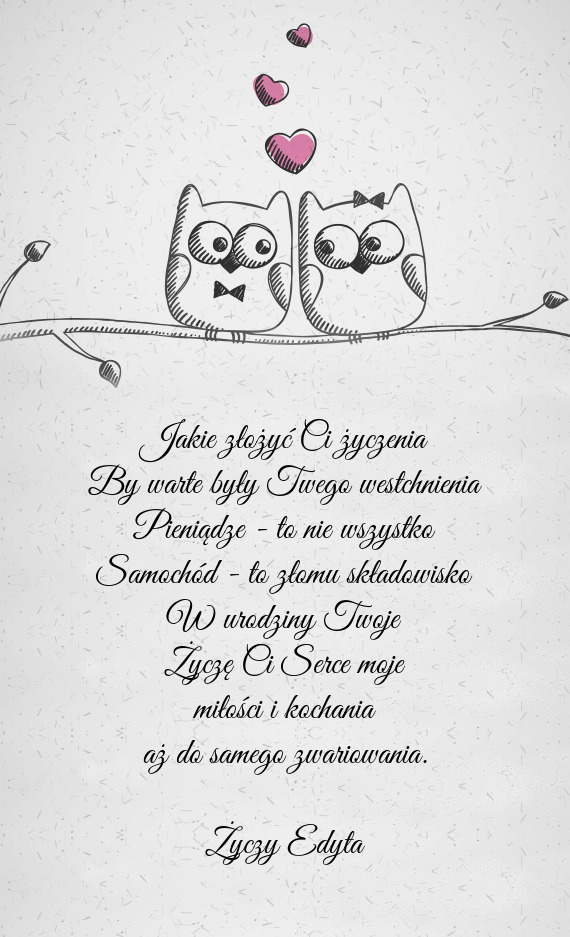 Jakie złożyć Ci życzenia
By warte były Twego westchnienia
Pieniądze - to nie wszystko
Samochód - to złomu składowisko
W urodziny Twoje
Życzę Ci Serce moje
miłości i kochania
aż do samego zwariowania.
Życzy Edyta